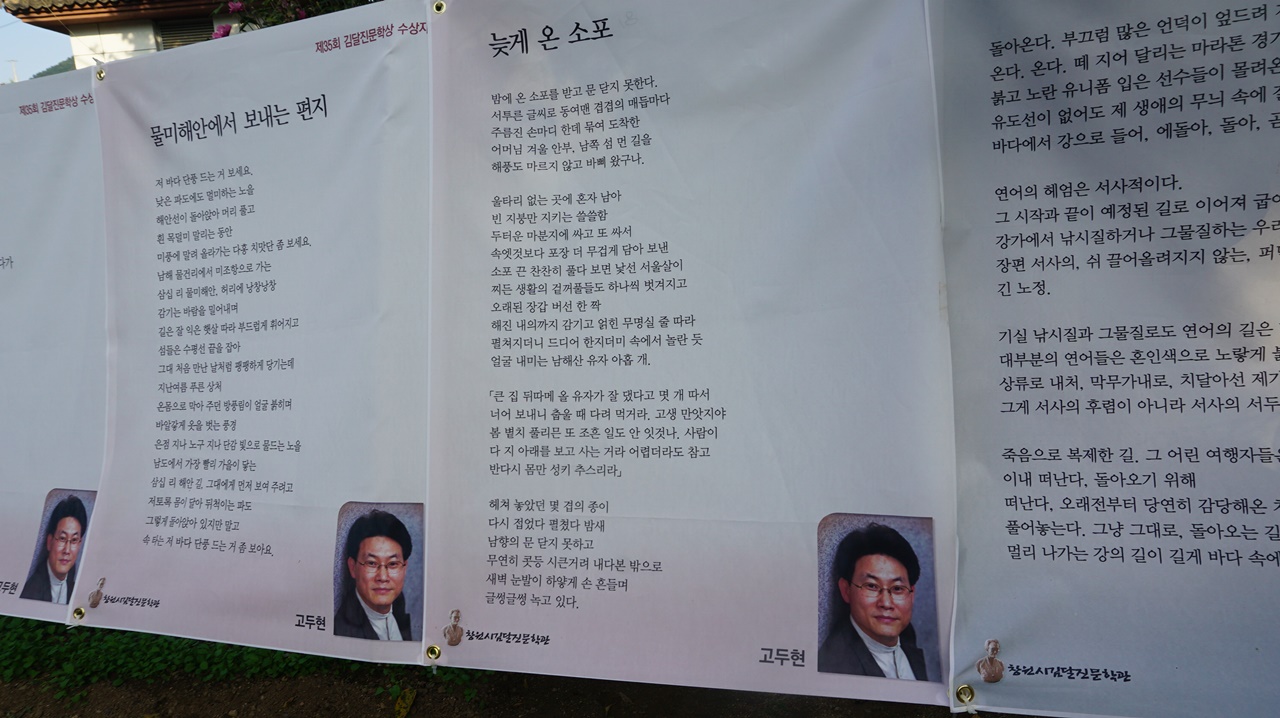 제35회 김달진문학상 수상
다가
고두현
제35회 김달진문학상 수상자
물미해안에서 보내는 편지
저 바다 단풍 드는 거 보세요.
낮은 파도에도 멀미하는 노을
해안선이 돌아앉아 머리 풀고
흰 목덜미 말리는 동안
미풍에 말려 올라가는 다홍 치맛단 좀 보세요.
남해 물건리에서 미조항으로 가는
삼십 리 물미해안, 허리에 낭창낭창
감기는 바람을 밀어내며
길은 잘 익은 햇살 따라 부드럽게 휘어지고
섬들은 수평선 끝을 잡아
그대 처음 만난 날처럼 팽팽하게 당기는데
지난여름 푸른 상처
온몸으로 막아 주던 방풍림이 얼굴 붉히며
바알갛게 옷을 벗는 풍경
은점 지나 노구 지나 단감 빛으로 물드는 노을
남도에서 가장 빨리 가을이 닿는
삼십 리 해안 길, 그대에게 먼저 보여 주려고
저토록 몸이 달아 뒤척이는 파도
그렇게 돌아앉아 있지만 말고
속 타는 저 바다 단풍 드는 거 좀 보아요.
창원시김달진문학관
고두현
늦게 온 소포
밤에 온 소포를 받고 문 닫지 못한다.
서투른 글씨로 동여맨 겹겹의 매듭마다
주름진 손마디 한데 묶여 도착한
어머님 겨울 안부, 남쪽 섬 먼 길을
해풍도 마르지 않고 바삐 왔구나.
울타리 없는 곳에 혼자 남아
빈 지붕만 지키는 쓸쓸함
두터운 마분지에 싸고 또 싸서
속엣것보다 포장 더 무겁게 담아 보낸
소포 끈 찬찬히 풀다 보면 낯선 서울살이
찌든 생활의 겉꺼풀들도 하나씩 벗겨지고
오래된 장갑 버선 한 짝
해진 내의까지 감기고 얽힌 무명실 줄 따라
펼쳐지더니 드디어 한지더미 속에서 놀란 듯
얼굴 내미는 남해산 유자 아홉 개.
「큰 집 뒤따메 올 유자가 잘 댔다고 몇 개 따서
너어 보내니 춥울 때 다려 먹거라. 고생 만앗지야
봄 볕치 풀리믄 또 조흔 일도 안 잇것나. 사람이
다 지 아래를 보고 사는 거라 어렵더라도 참고
반다시 몸만 성키 추스리라」
헤쳐 놓았던 몇 겹의 종이
다시 접었다 펼쳤다 밤새
남향의 문 닫지 못하고
무연히 콧등 시큰거려 내다본 밖으로
새벽 눈발이 하얗게 손 흔들며
글썽글썽 녹고 있다.
창원시김달진문학관
고두현
돌아온다. 부끄럼 많은 언덕이 엎드려
온다. 온다. 떼 지어 달리는 마라톤 경기
붉고 노란 유니폼 입은 선수들이 몰려온
유도선이 없어도 제 생애의 무늬 속에
바다에서 강으로 들어, 에돌아, 돌아,
연어의 헤엄은 서사적이다.
그 시작과 끝이 예정된 길로 이어져 굽이
강가에서 낚시질하거나 그물질하는 우리
장편 서사의, 쉬 끌어올려지지 않는,
긴 노정.
기실 낚시질과 그물질로도 연어의 길은
대부분의 연어들은 혼인색으로 노랗게
상류로 내처, 막무가내로, 치달아선 제
그게 서사의 후렴이 아니라 서사의 서두
죽음으로 복제한 길. 그 어린 여행자들은
이내 떠난다, 돌아오기 위해
떠난다, 오래전부터 당연히 감당해온
풀어놓는다. 그냥 그대로, 돌아오는 길
멀리 나가는 강의 길이 길게 바다 속에
창원시김달진문학관